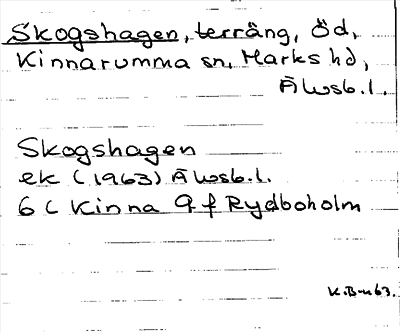 Skogshagen, terräng, Öd,
Kinnarumma sn, Marks hd,
Älvsb.l.
Skogshagen
ek (1963) Älvsb.l.
6 C Kinna 9 f Rydboholm
K.B-m 63.